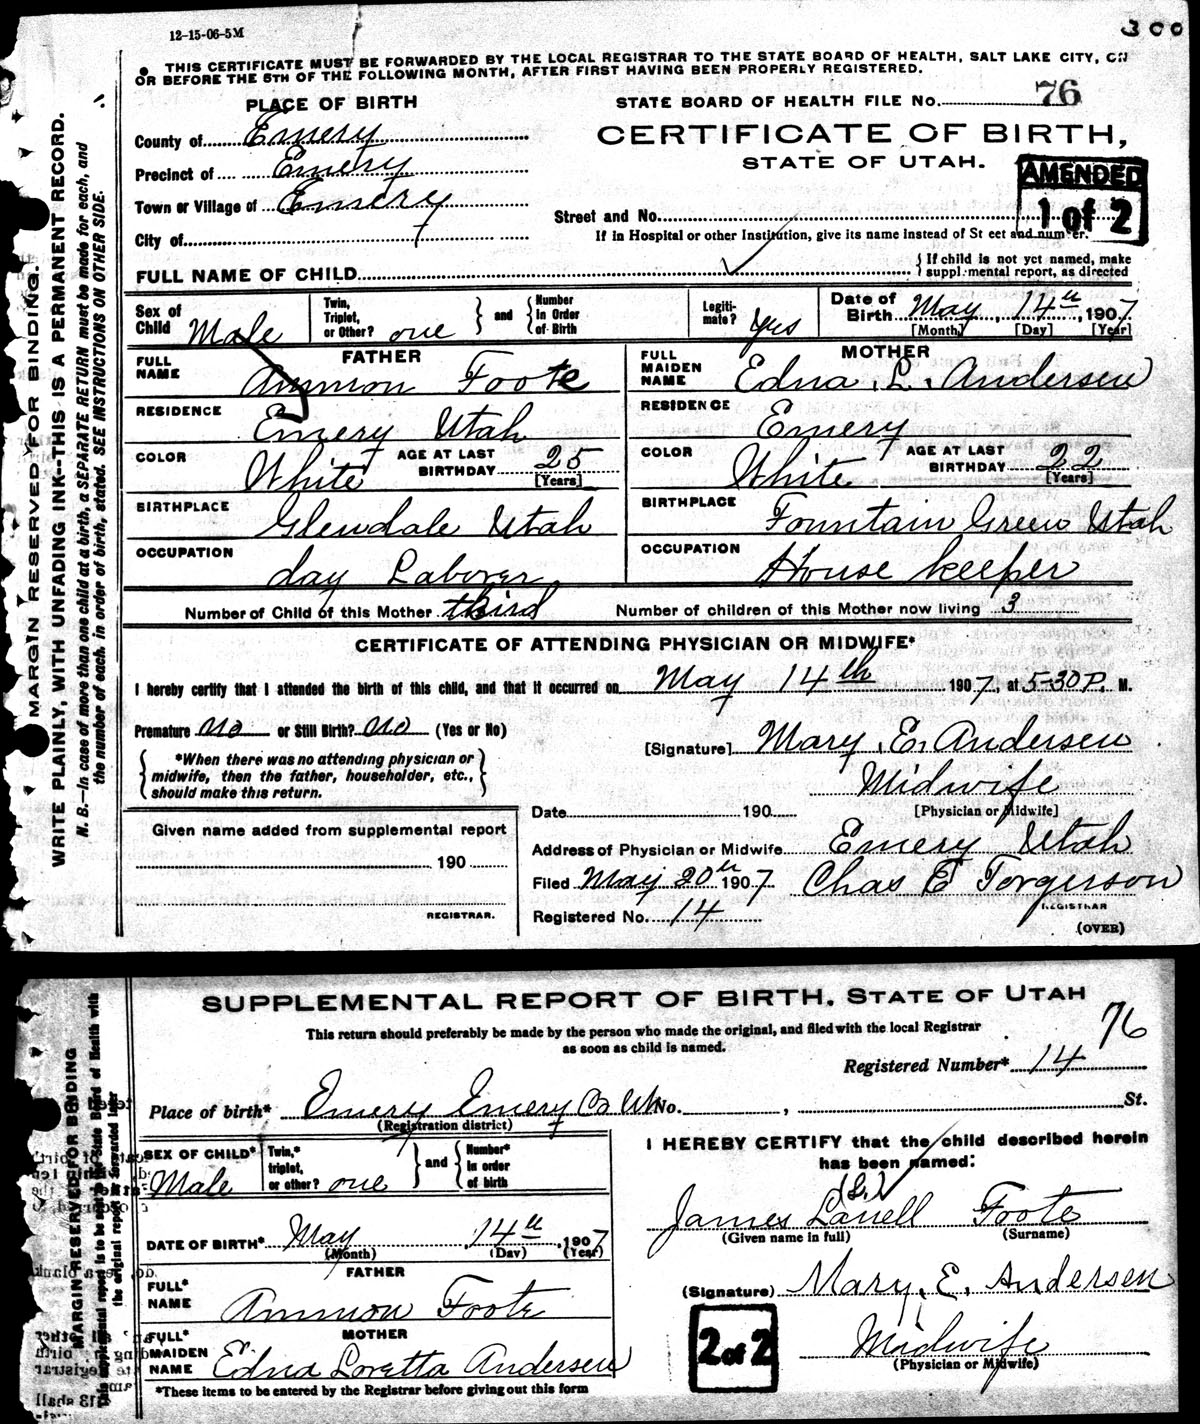 12-15-06-5M
300
THIS CERTIFICATE MUST BE FORWARDED BY THE LOCAL REGISTRAR TO THE STATE BOARD OF HEALTH, SALT LAKE CITY, ON
OR BEFORE THE 5TH OF THE FOLLOWING MONTH, AFTER FIRST HAVING BEEN PROPERLY REGISTERED.
MARGIN RESERVED FOR BINDING.
WRITE PLAINLY, WITH UNFADING INK--THIS IS A PERMANENT RECORD.
N. B.—In case of more than one child at a birth, a SEPARATE RETURN must be made for each, and
the number of each, in order of birth, stated. SEE INSTRUCTIONS ON OTHER SIDE.
PLACE OF BIRTH
County of Emery
Precinct of Emery
Town or Village of Emery
City of
STATE BOARD OF HEALTH FILE No. 76
CERTIFICATE OF BIRTH,
STATE OF UTAH.
AMENDED
1 of 2
Street and No.
If in Hospital or other Institution, give its name instead of St eet and number.
FULL NAME OF CHILD
If child is not yet named, make
supplemental report, as directed
Sex of Child Male
Twin, Triplet, or Other? one
and
Number in Order of Birth
Legiti-mate? Yes
Date of Birth May, 14th, 1907
[Month] [Day] [Year]
FATHER
FULL NAME Ammon Foote
RESIDENCE Emery Utah
COLOR White
AGE AT LAST BIRTHDAY 25
[Years]
BIRTHPLACE Glendale Utah
OCCUPATION day Laborer
MOTHER
FULL MAIDEN NAME Edna. L. Andersen
RESIDENCE Emery
COLOR White
AGE AT LAST BIRTHDAY 22
[Years]
BIRTHPLACE Fountain Green Utah
OCCUPATION House keeper
Number of Child of this Mother third Number of children of this Mother now living 3
CERTIFICATE OF ATTENDING PHYSICIAN OR MIDWIFE*
I hereby certify that I attended the birth of this child, and that it occurred on May 14th 1907, at 5-30 P. M.
Premature no or Still Birth? no (Yes or No)
*When there was no attending physician or
midwife, then the father, householder, etc.,
should make this return.
[Signature] Mary. E. Andersen
Midwife
[Physician or Midwife]
Date 190
Given name added from supplemental report
190
REGISTRAR.
Address of Physician or Midwife Emery Utah
Filed May 20th 1907 Chas E Torgerson
REGISTRAR
Registered No. 14
(OVER)
SUPPLEMENTAL REPORT OF BIRTH. STATE OF UTAH
This return should preferably be made by the person who made the original, and filed with the local Registrar
as soon as child is named.
76
Registered Number* 14
MARGIN RESERVED FOR BINDING
Place of birth* Emery Emery Co Ut No. , St.
(Registration district)
SEX OF CHILD* Male
Twin,* triplet, or other? one
and
Number* in order of birth
DATE OF BIRTH* May 14th, 1907
(Month) (Day) (Year)
FATHER
FULL* NAME Ammon Foote
MOTHER
FULL* MAIDEN NAME Edna Loretta Andersen
*These items to be entered by the Registrar before giving out this form
I HEREBY CERTIFY that the child described herein
has been named:
(L.)
James Lanell Foote
(Given name in full) (Surname)
(Signature) Mary. E. Andersen
Midwife
(Physician or Midwife)
2 of 2